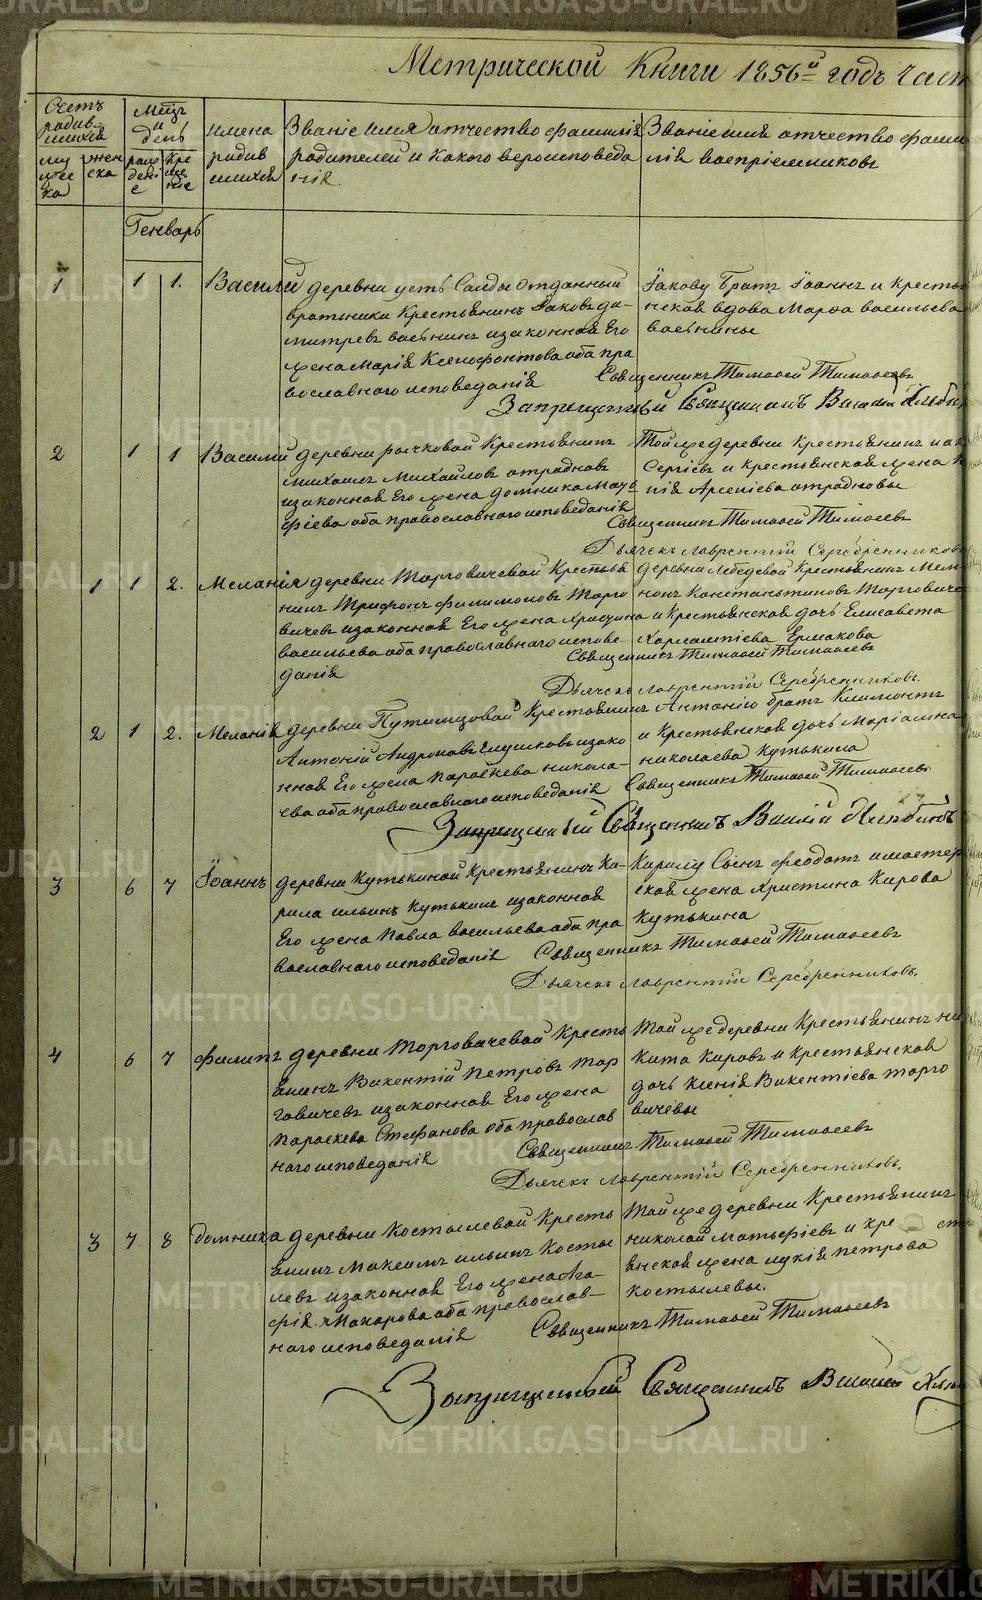 Метрической Книги 1856й годъ Част
Счетъ родив шихся
Мсцъ и день
имена родив шихся
Званіе имя отчество фамилія родителей и какого вероисповеда нія.
Званіе имя отчество фами лія воспріемниковъ
му жес ка
жен ска
рож дені е
кре ще ніе
Генварь
1 1 1. Василій
деревни усть Салды отданный
вратники Крестьянинъ Яковъ ди-
митревъ изаконная Его
жена Марія Ксенофонтова оба пра
вославнаго исповеданія
Іакову братъ Іоаннъ и кресть
нская вдова Марѳа васильева
Священникъ Тимоѳей Тимоѳеевъ
Запрещенный Священникъ
2 1 1 Василій
деревни рычковой Крестьянинъ
Михаилъ Михайловъ отрадновъ
изаконная Его жена домника
фіева оба православнаго исповеданія
Той же деревни Крестьянинъ
Сергіевъ и крестьянская жена
нія Арсеніева отрадновы
Священникъ Тимоѳей Тимоѳеевъ
Дьячекъ Лаврентій Серебренниковъ
1 1 2. Меланія
деревни Торговичевой Крестья
нинъ Трифонъ филимоновъ Торго
вичевъ изаконная Его жена Христина
васильева оба православнаго испове-
данія
деревни лебедевой Крестьянинъ
нонъ Константиновъ Торговиче
и Крестьянская дочь Елисавета
Харлампіева Ермакова
Священникъ Тимоѳей Тимоѳеевъ
Дьячекъ Лаврентій Серебренниковъ.
2 1 2. Меланія
деревни Путимцовой Крестьянинъ
Антоній Андроновъ изако
нная Его жена параскева никола-
ева оба православнаго исповеданія
Антонію братъ Климонтъ
и Крестьянская дочь Маріамна
николаева кутькина
Священникъ Тимоѳей Тимоѳеевъ
Запрещенный Священникъ Василій
3 6 7 Іоаннъ
деревни Кутькиной Крестьянинъ Ки-
рила ильинъ кутькинъ изаконная
Его жена павла васильева оба пра
вославнаго исповеданія
Кирилу Сынъ феодотъ имастер
ская жена Христина Кирова
кутькина
Священникъ Тимоѳей Тимоѳеевъ
Дьячекъ Лаврентій Серебренниковъ.
4 6 7 филипъ
деревни Торговичевой Кресть
янинъ Викентій Петровъ тор
говичевъ изаконная Его жена
параскева Стефанова оба православ
наго исповеданія
Той же деревни Крестьянинъ ни
кита Кировъ и крестьянская
дочь ксенія Викентіева торго
вичевы
Священникъ Тимоѳей Тимоѳеевъ
Дьячекъ Лаврентій Серебренниковъ.
3 7 8 домника
деревни Костылевой Кресть
янинъ Максимъ ильинъ Косты
левъ изаконная Его жена Ага-
фія Макарова оба православ-
наго исповеданія
Той же деревни Крестьянинъ
николай Матьфіевъ и кре ст
янская жена лукія петрова
костылевы.
Священникъ Тимоѳей Тимоѳеевъ
Запрещенный Священникъ Василій
METRIKI.GASO-URAL.RU